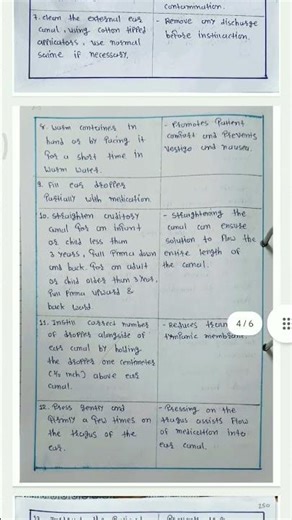 contamination.
7. clean the external ear
canal, using cotton tipped
applicators, use normal
saline if necessary.
- Remove any discharge
before instillation.
8. Warm container in
hand or by placing it
for a short time in
warm water.
- Promotes Patient
comfort and prevents
vertigo and nausea.
9. Fill ear dropper
Partially with medication
10. Straighten auditory
canal for an infant
or child less than
3 years, Pull Pinna down
and back. for an adult
or child older than 3 year,
Pull Pinna upward &
back ward.
- Straightening the
canal can ensure
solution to flow the
entire length of
the canal.
11. Instill correct number
of drops alongside of
ear canal by holding
the dropper one centimeter
(1/2 inch) above ear
canal.
- Reduces
tympanic membrane
4/6
12. Press gently and
firmly a few times on
the tragus of the
ear.
- Pressing on the
tragus assists flow
of medication into
ear canal.
250